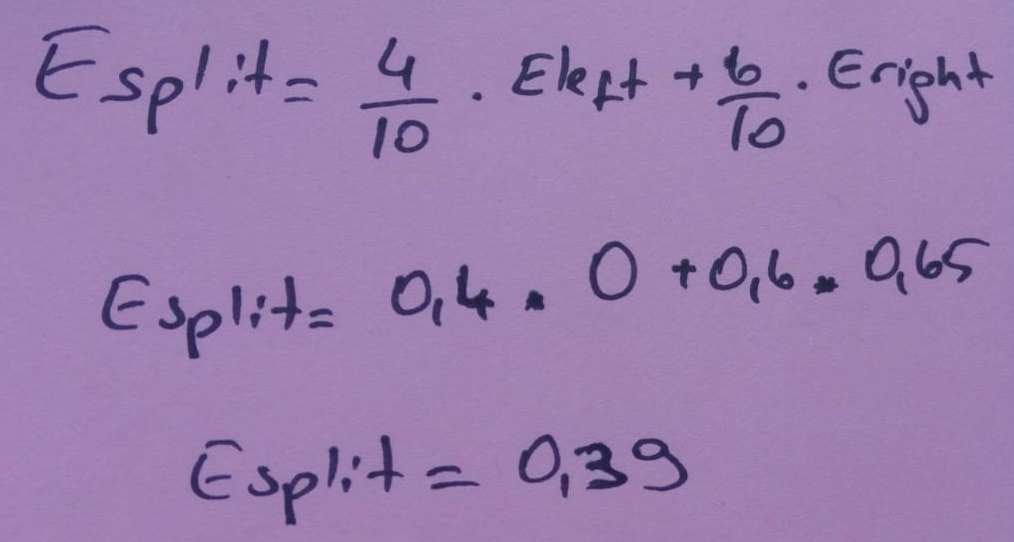 Esplit = 4/10 . Eleft + 6/10 . Eright
Esplit = 0,4 . 0 + 0,6 . 0,65
Esplit = 0,39